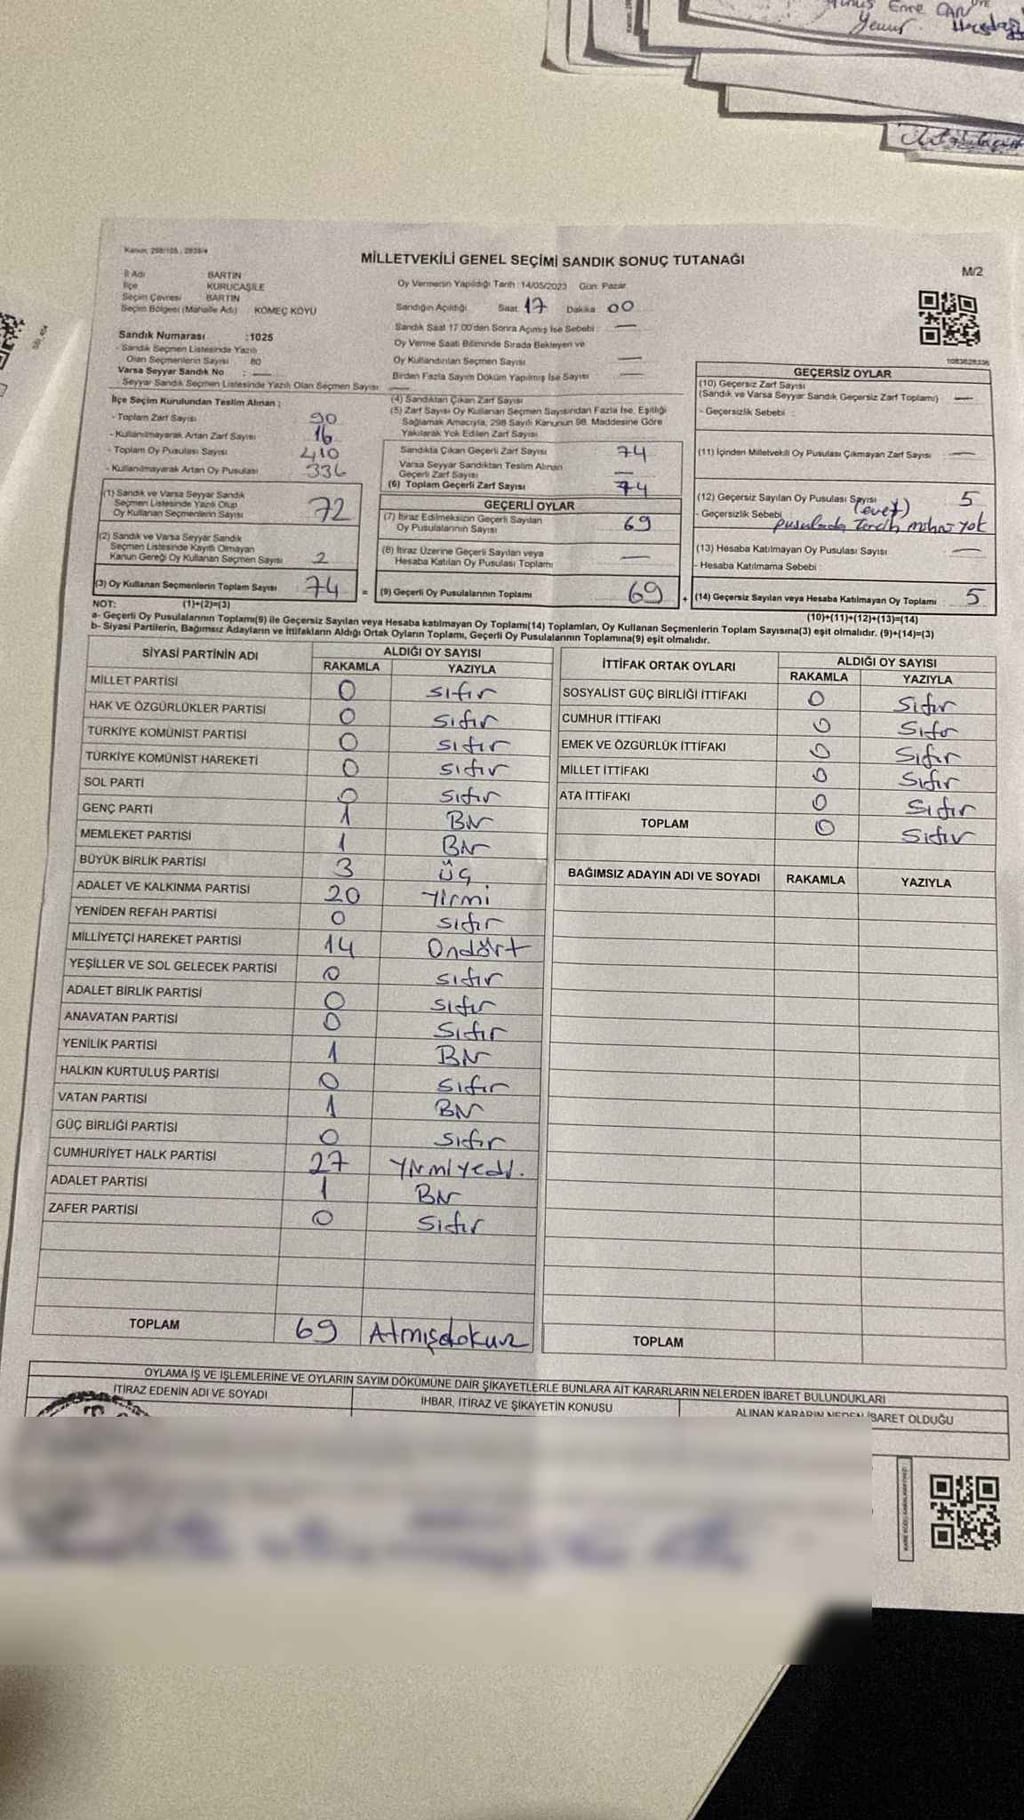 Kanun: 298/105 , 2839/4
MİLLETVEKİLİ GENEL SEÇİMİ SANDIK SONUÇ TUTANAĞI
M/2
İl Adı BARTIN
İlçe KURUCAŞİLE
Seçim Çevresi BARTIN
Seçim Bölgesi (Mahalle Adı) KÖMEÇ KÖYÜ
Sandık Numarası :1025
- Sandık Seçmen Listesinde Yazılı
Olan Seçmenlerin Sayısı 80
Varsa Seyyar Sandık No : —
- Seyyar Sandık Seçmen Listesinde Yazılı Olan Seçmen Sayısı —
Oy Vermenin Yapıldığı Tarih :14/05/2023 Gün: Pazar
Sandığın Açıldığı Saat 17 Dakika 00
Sandık Saat 17.00'den Sonra Açımış İse Sebebi : —
Oy Verme Saati Bitiminde Sırada Bekleyen ve
Oy Kullandırılan Seçmen Sayısı —
Birden Fazla Sayım Döküm Yapılmış İse Sayısı —
İlçe Seçim Kurulundan Teslim Alınan :
- Toplam Zarf Sayısı 90
- Kullanılmayarak Artan Zarf Sayısı 16
- Toplam Oy Pusulası Sayısı 410
- Kullanılmayarak Artan Oy Pusulası 336
(1) Sandık ve Varsa Seyyar Sandık
Seçmen Listesinde Yazılı Olup
Oy Kullanan Seçmenlerin Sayısı 72
(2) Sandık ve Varsa Seyyar Sandık
Seçmen Listesinde Kayıtlı Olmayan
Kanun Gereği Oy Kullanan Seçmen Sayısı 2
(3) Oy Kullanan Seçmenlerin Toplam Sayısı 74
(1)+(2)=(3)
(4) Sandıktan Çıkan Zarf Sayısı
(5) Zarf Sayısı Oy Kullanan Seçmen Sayısından Fazla İse, Eşitliği
Sağlamak Amacıyla, 298 Sayılı Kanunun 98. Maddesine Göre
Yakılarak Yok Edilen Zarf Sayısı
Sandıkta Çıkan Geçerli Zarf Sayısı 74
Varsa Seyyar Sandıktan Teslim Alınan
Geçerli Zarf Sayısı —
(6) Toplam Geçerli Zarf Sayısı 74
GEÇERLİ OYLAR
(7) İtiraz Edilmeksizin Geçerli Sayılan
Oy Pusulalarının Sayısı 69
(8) İtiraz Üzerine Geçerli Sayılan veya
Hesaba Katılan Oy Pusulası Toplamı —
= (9) Geçerli Oy Pusulalarının Toplamı 69
1083828336
GEÇERSİZ OYLAR
(10) Geçersiz Zarf Sayısı
(Sandık ve Varsa Seyyar Sandık Geçersiz Zarf Toplamı) —
- Geçersizlik Sebebi :
(11) İçinden Milletvekili Oy Pusulası Çıkmayan Zarf Sayısı —
(12) Geçersiz Sayılan Oy Pusulası Sayısı 5
- Geçersizlik Sebebi (evet)
pusulada Tercih mührü yok
(13) Hesaba Katılmayan Oy Pusulası Sayısı —
- Hesaba Katılmama Sebebi
+ (14) Geçersiz Sayılan veya Hesaba Katılmayan Oy Toplamı 5
(10)+(11)+(12)+(13)=(14)
NOT:
a- Geçerli Oy Pusulalarının Toplamı(9) ile Geçersiz Sayılan veya Hesaba katılmayan Oy Toplamı(14) Toplamları, Oy Kullanan Seçmenlerin Toplam Sayısına(3) eşit olmalıdır. (9)+(14)=(3)
b- Siyasi Partilerin, Bağımsız Adayların ve İttifakların Aldığı Ortak Oyların Toplamı, Geçerli Oy Pusulalarının Toplamına(9) eşit olmalıdır.
SİYASİ PARTİNİN ADI ALDIĞI OY SAYISI
RAKAMLA YAZIYLA
MİLLET PARTİSİ 0 sıfır
HAK VE ÖZGÜRLÜKLER PARTİSİ 0 sıfır
TÜRKİYE KOMÜNİST PARTİSİ 0 sıfır
TÜRKİYE KOMÜNİST HAREKETİ 0 sıfır
SOL PARTİ 0 sıfır
GENÇ PARTİ 1 Bir
MEMLEKET PARTİSİ 1 Bir
BÜYÜK BİRLİK PARTİSİ 3 üç
ADALET VE KALKINMA PARTİSİ 20 Yirmi
YENİDEN REFAH PARTİSİ 0 sıfır
MİLLİYETÇİ HAREKET PARTİSİ 14 Ondört
YEŞİLLER VE SOL GELECEK PARTİSİ 0 sıfır
ADALET BİRLİK PARTİSİ 0 sıfır
ANAVATAN PARTİSİ 0 Sıfır
YENİLİK PARTİSİ 1 Bir
HALKIN KURTULUŞ PARTİSİ 0 sıfır
VATAN PARTİSİ 1 Bir
GÜÇ BİRLİĞİ PARTİSİ 0 sıfır
CUMHURİYET HALK PARTİSİ 27 Yirmiyedi.
ADALET PARTİSİ 1 Bir
ZAFER PARTİSİ 0 Sıfır
TOPLAM 69 Atmışdokuz
İTTİFAK ORTAK OYLARI ALDIĞI OY SAYISI
RAKAMLA YAZIYLA
SOSYALİST GÜÇ BİRLİĞİ İTTİFAKI 0 Sıfır
CUMHUR İTTİFAKI 0 Sıfır
EMEK VE ÖZGÜRLÜK İTTİFAKI 0 Sıfır
MİLLET İTTİFAKI 0 Sıfır
ATA İTTİFAKI 0 Sıfır
TOPLAM 0 Sıfır
BAĞIMSIZ ADAYIN ADI VE SOYADI RAKAMLA YAZIYLA
TOPLAM
OYLAMA İŞ VE İŞLEMLERİNE VE OYLARIN SAYIM DÖKÜMÜNE DAİR ŞİKAYETLERLE BUNLARA AİT KARARLARIN NELERDEN İBARET BULUNDUKLARI
İTİRAZ EDENİN ADI VE SOYADI İHBAR, İTİRAZ VE ŞİKAYETİN KONUSU ALINAN KARARIN NEDEN İBARET OLDUĞU